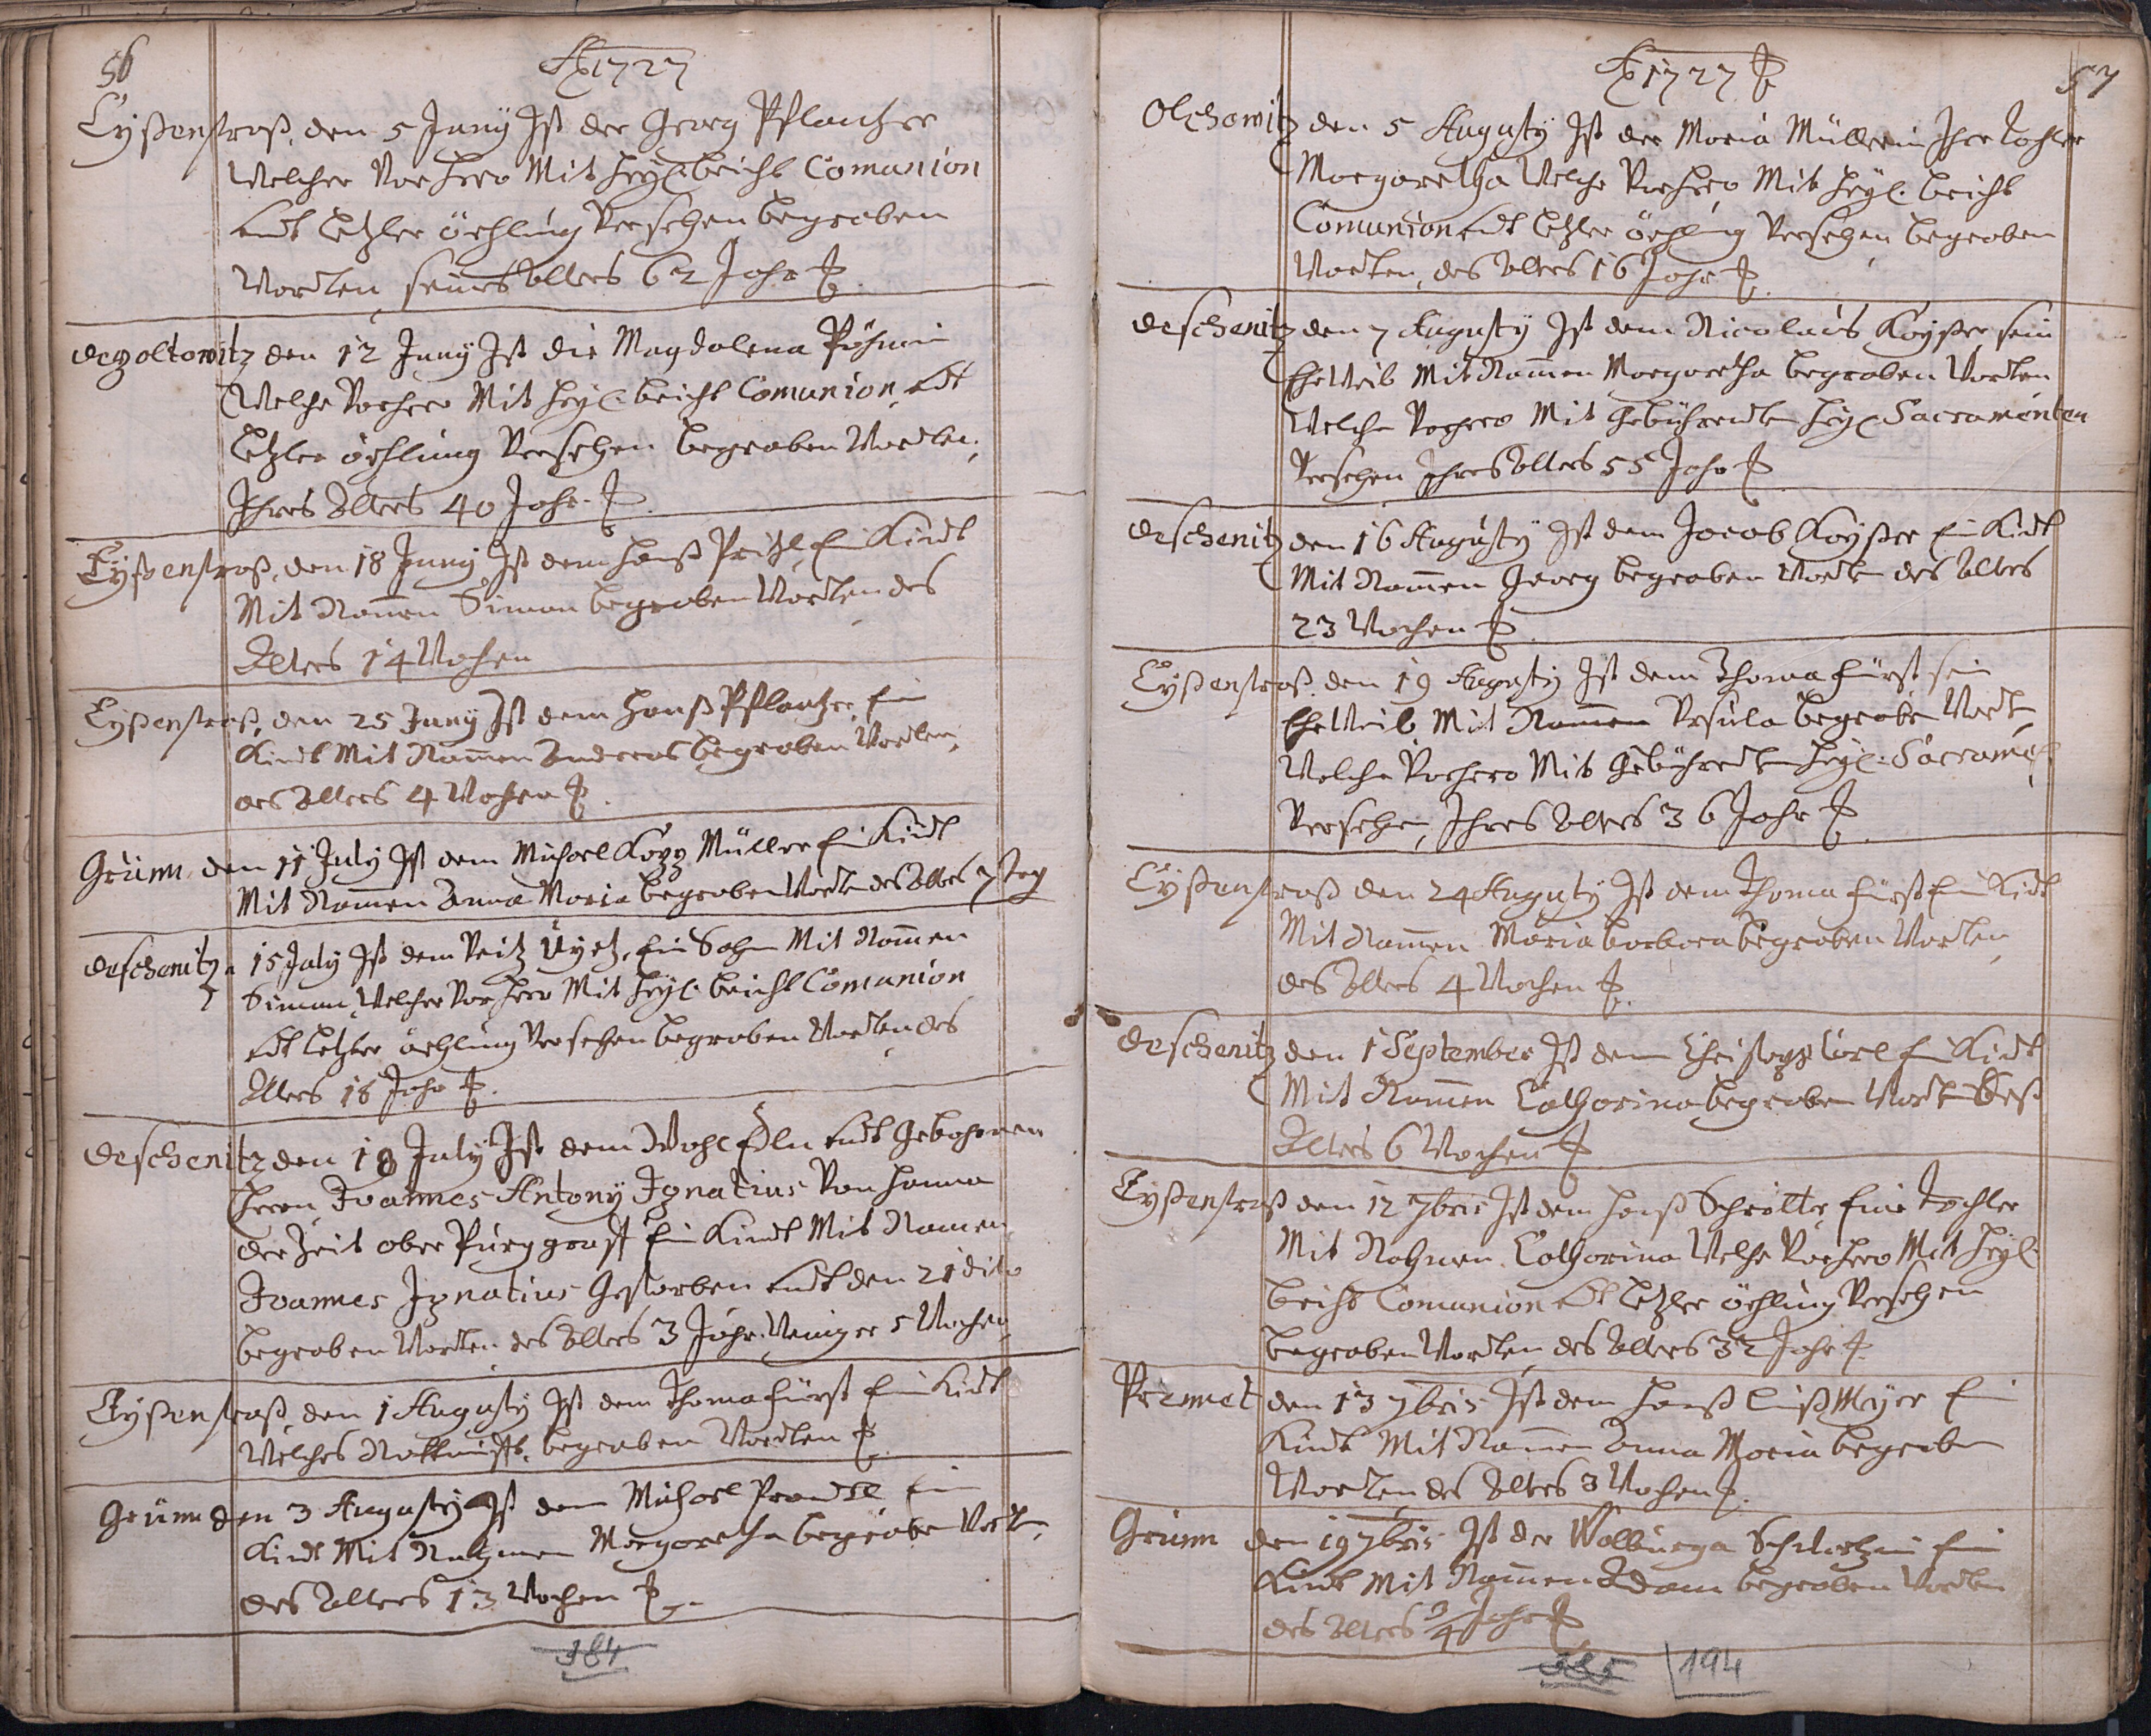 56
Ao 1727
Eyßenstraß, den 5 Juny Ist der Georg Pflantzer
Welcher Vorhero Mit heyl: beicht Comunion
undt letzter öehlung Versehen begraben
Wordten, seines Alters 62 Jahr
depoltowitz den 12 Juny Ist die Magdalena
Welche Vorhero Mit heyl: beicht Comunion, undt
letzter öehlung Versehen begraben Wordten,
Ihres Alters 40 Jahr
Eyßenstraß, den 18 Juny Ist dem Hanß Pritzl, Ein Kindt
Mit Namen Simon begraben Wordten des
Alters 14 Wochen
Eyßenstraß, den 25 Juny Ist dem Hanß Pflantzer, Ein
Kindt Mit Namen Andreas begraben Wordten,
des Alters 4 Wochen
Grünn, den 11 July Ist dem Michael Müller Ein Kindt
Mit Namen Anna Maria begraben Wordten des Alters 7 Tag
deschenitz 15 July Ist dem Veitz Ein Sohn Mit Namen
Simon, Welcher Vorhero Mit heyl: beicht Comunion
undt letzter öehlung Versehen begraben Wordten des
Alters 18 Jahr
deschenitz den 18 July Ist dem Wohl Edlen undt Gebohrnen
Herrn Joannes Antony Ignatius Von Hanna
der Zeit ober Purggraff Ein Kindt Mit Namen
Joannes Ignatius Gestorben undt den 21 dito
begraben Wordten des Alters 3 Jahr, Weniger 5 Wochen
Eyßenstraß, den 1 Augusty Ist dem Thoma Fürst Ein Kindt
Welches begraben Wordten
Grünn den 3 Augusty Ist dem Michael Ein
Kindt Mit Nahmen Margaretha begraben Wordten,
des Alters 13 Wochen
184
Ao 1727
57
Olchowitz den 5 Augusty Ist der Maria Müllerin Ihre Tochter
Margaretha Welche Vorhero Mit heyl: beicht
Comunion undt letzter öehlung Versehen begraben
Wordten, des Alters 16 Jahr
deschenitz den 7 Augusty Ist dem Nicolaus Kayßer sein
Eheweib Mit Namen Margaretha begraben Worten
Welche Vorhero Mit gebührendten heyl Sacramenten
Versehen Ihres Alters 55 Jahr
deschenitz den 16 Augusty Ist dem Jacob Kayßer Ein Kindt
Mit Namen Georg begraben Wordten des Alters
23 Wochen
Eyßenstraß den 19 Augusty Ist dem Thoma Fürst sein
Eheweib, Mit Namen Ursula begraben Wordten,
Welche Vorhero Mit gebührendten heyl: Sacramen
Versehen, Ihres Alters 36 Jahr
Eyßenstraß den 24 Augusty Ist dem Thoma Fürst Ein Kindt
Mit Namen Maria Barbara begraben Worten
des Alters 4 Wochen
deschenitz den 1 September Ist dem Christoph Ein Kindt
Mit Namen Catharina begraben Wordten deß
Alters 6 Wochen
Eyßenstraß den 12 7bris Ist dem Hanß Schrötter Eine Tochter
Mit Nahmen Catharina Welche Vorhero Mit heyl:
beicht Comunion undt letzter öehlung Versehen
begraben Wordten, des Alters 32 Jahr
den 13 7bris Ist dem Hanß Ein
Kindt Mit Namen Anna Maria begraben
Worten des Alters 3 Wochen
Grünn den 19 7bris Ist der Walburga Ein
Kindt Mit Namen Adam begraben Wordten
des Alters 3/4 Jahr
194